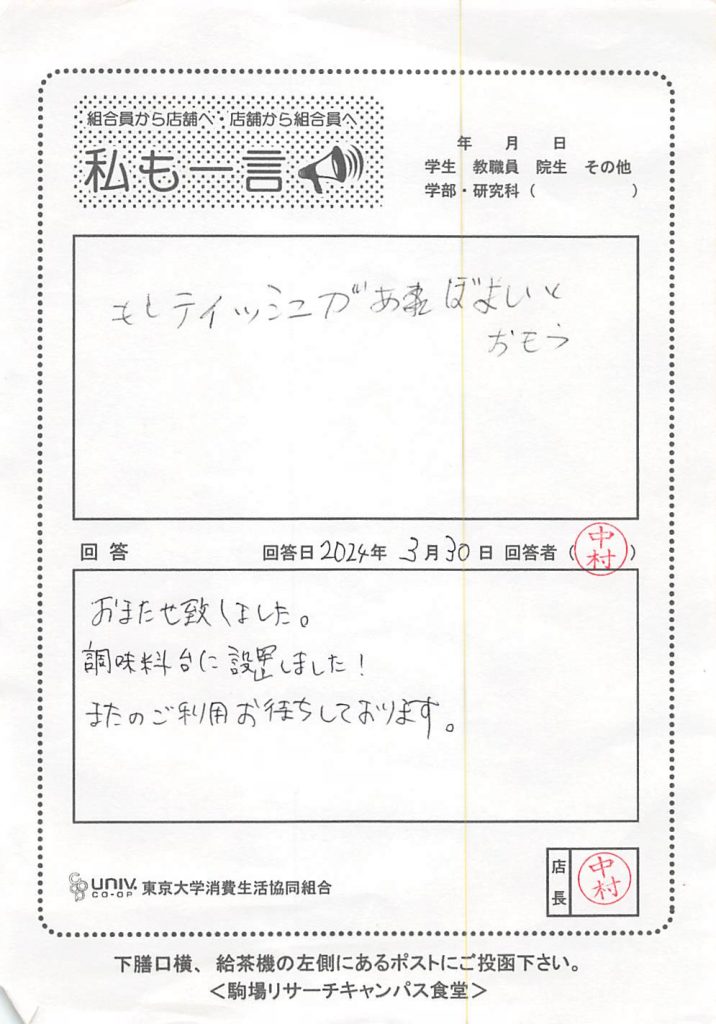 組合員から店舗へ・店舗から組合員へ
私も一言
年 月 日
学生 教職員 院生 その他
学部・研究科( )
もしティッシュがあればよいと
おもう
回答 回答日2024年 3月30日 回答者(中村)
おまたせ致しました。
調味料台に設置しました!
またのご利用お待ちしております。
UNIV. CO-OP 東京大学消費生活協同組合
店長 中村
下膳口横、給茶機の左側にあるポストにご投函下さい。
<駒場リサーチキャンパス食堂>